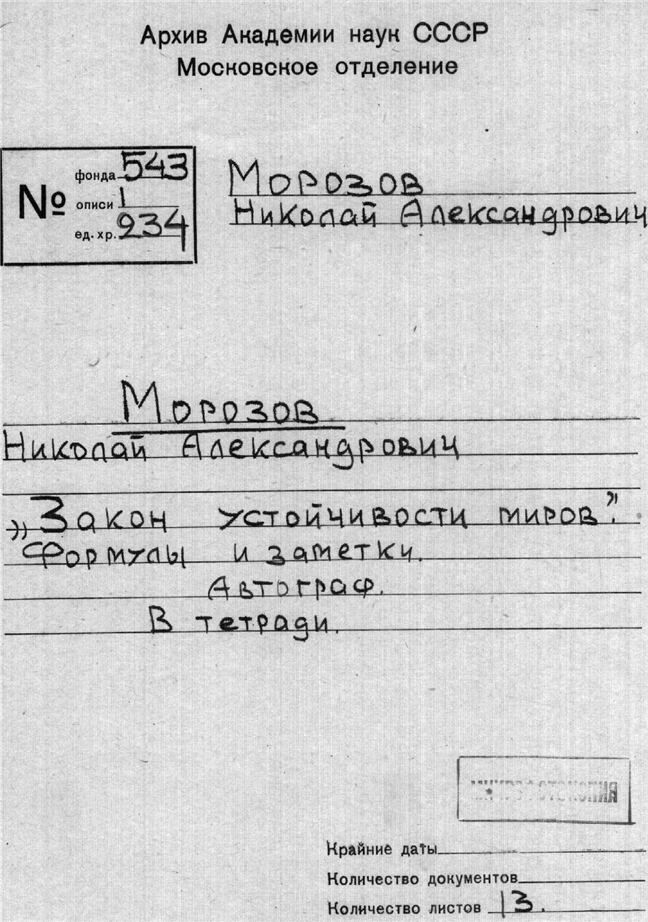 Архив Академии наук СССР
Московское отделение
№
фонда 543
описи 1
ед. хр. 234
Морозов
Николай Александрович
Морозов
Николай Александрович
„Закон устойчивости миров".
Формулы и заметки.
Автограф.
В тетради.
Крайние даты
Количество документов
Количество листов 13.